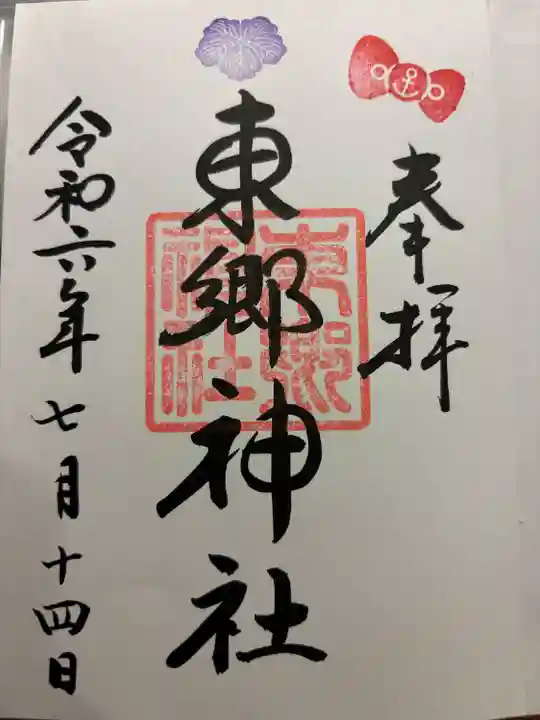 奉拝
東郷神社
東郷神社
令和六年七月十四日